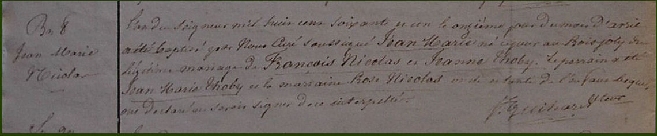 Bs 8
Jean Marie
Nicolas
L'an du seigneur mil huit cent soixante et un le onzième jour du mois d'avril
a été baptisé par Nous curé soussigné Jean Marie né au
légitime mariage de François Nicolas et Jeanne Choby. Le parrain a été
Jean Marie Choby et la marraine Rose Nicolas de l'enfant lesquels
ont déclaré ne savoir signer de ce interpellés.